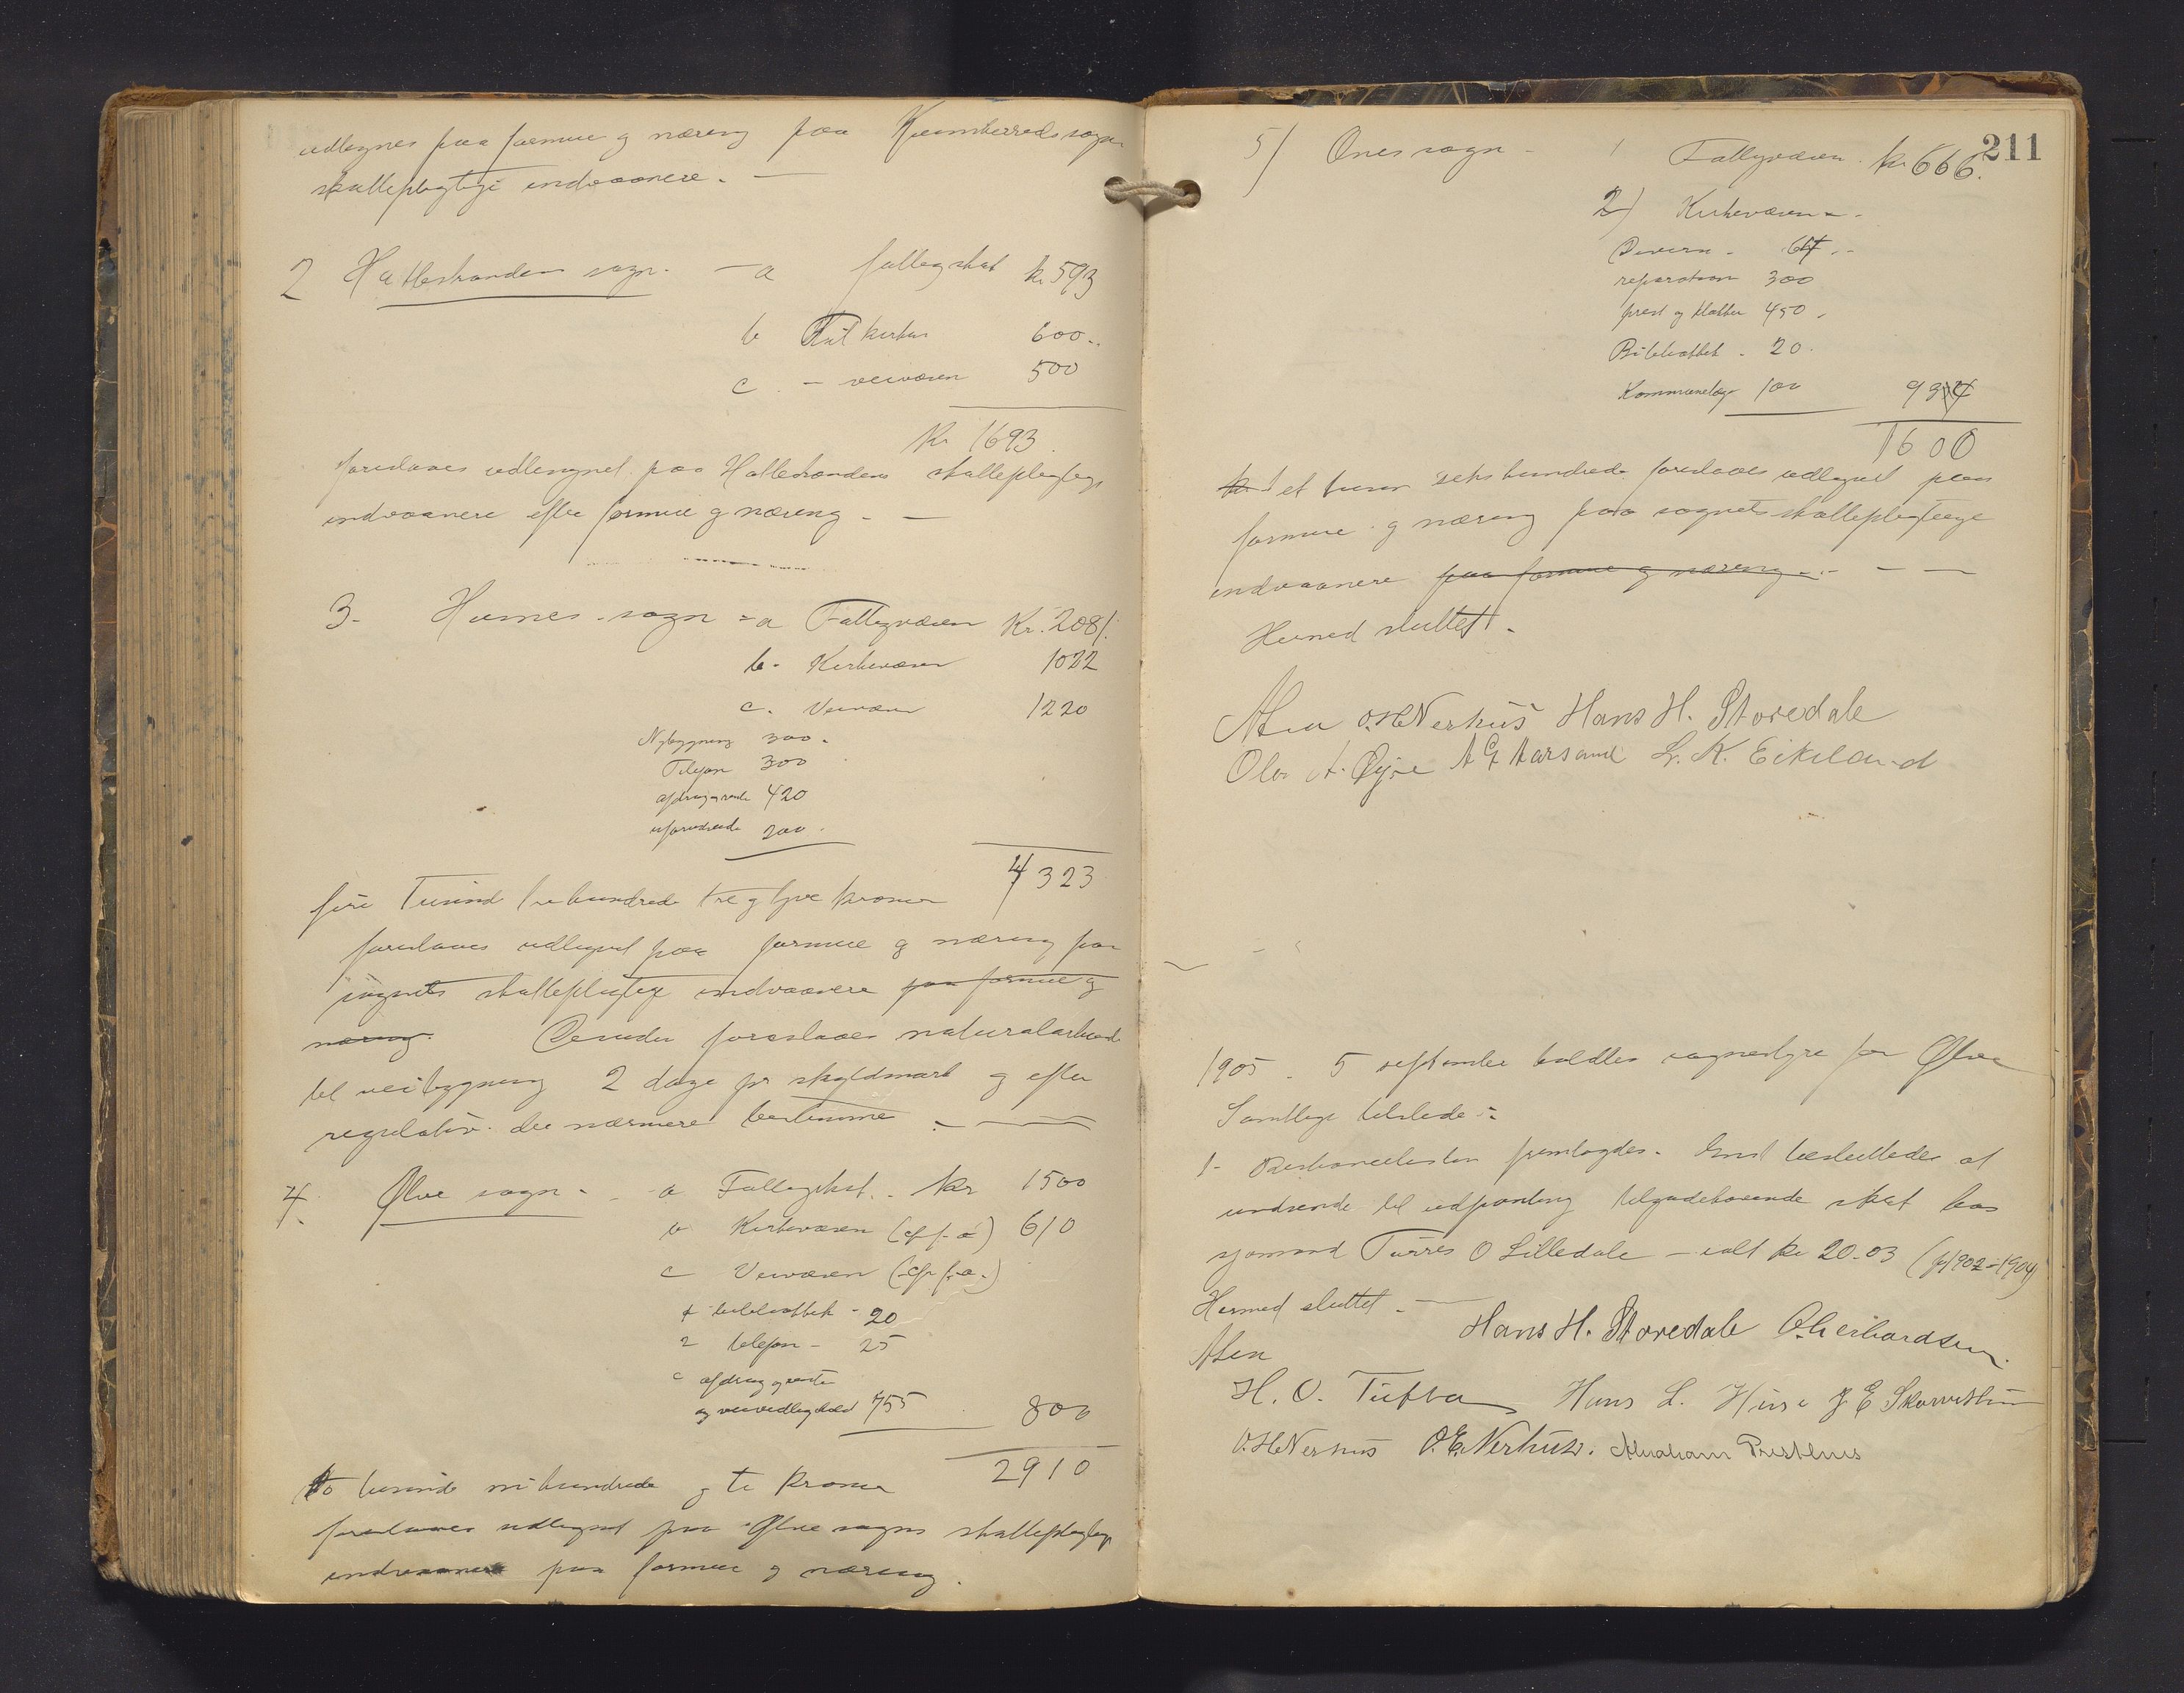 udlignes paa formue og næring paa Kvinherreds sogns
skattepligtige indvaanere. —
2 Hatlestrandens sogn. — a fattigskat kr 593
b til kirken 600..
c. — veivæsen 500
Kr 1693.
foreslaaes udlignet paa Hatlestrandens skattepligtige
indvaanere efter formue og næring. —
3. Husnes sogn - a Fattigvæsen Kr. 2081.
b. Kirkevæsen 1022
c. Veivæsen 1220
Nybygning 300.
Telefon 300
afdrag og rente 420
uforudseede 200.
4323
fire Tusind trehundrede tre og tyve kroner
foreslaaes udlignet paa formue og næring paa
sognets skattepligtige indvaanere paa formue og
næring. Desuden foreslaaes naturalarbeide
til veibygning 2 dage pr skyldmark og efter
regulativ. der nærmere bestemmes. —
4. Ølve sogn. - a Fattigskat.. kr 1500
b Kirkevæsen (cf f. a) 610
c Veivæsen (cfr f. a.)
bibliothek - 20
2 telefon - 25
c afdrag og rente
og veivedligehold 755 800
2910
to tusinde nihundrede og ti kroner
foreslaaes udlignet paa Ølve sogns skattepligtige
indvaanere paa formue og næring.
211
5) Ænes sogn - 1 Fattigvæsen. kr 666.
2) Kirkevæsen -.
Diverse - 64 . -
reparation 300
prest og klokker 450.
Bibliothek. 20.
Kommunelæge 100 934
1600
kr et tusen seks hundrede foreslaaes udlignet paa
formue og næring paa sognets skattepligtige
indvaanere paa formue og næring. - — —
Hermed sluttet.
O.H Nerhus Hans H. Storedale
Ola A. Øye A G Aarsand L. K. Eikeland
1905. 5 september holdtes sognestyre for Ølve
Samtlige tilstede. -
1- Restancelisten fremlagdes. Enst. besluttedes at
undsende til udpanting tilgodehavende skat hos
sjømand Tørres O Lilledale - ialt kr 20.03 (f 1902-1904)
Hermed sluttet. —
Hans H. Storedale O. Gerhardsen.
H. O. Tufta Hans L. Huse J E Skarvethun
O.H Nerhus O.E. Nerhus. Abraham Presthus